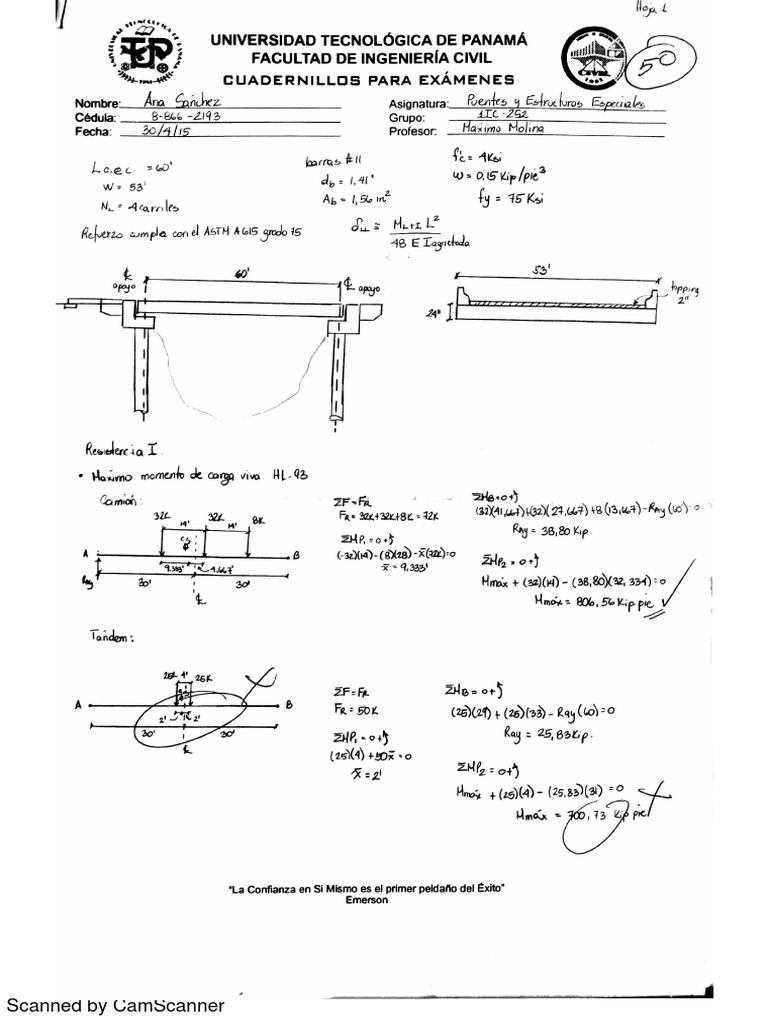 Hoja 1
UNIVERSIDAD TECNOLÓGICA DE PANAMÁ
FACULTAD DE INGENIERÍA CIVIL
CUADERNILLOS PARA EXÁMENES
50
Nombre: Ana Sánchez
Cédula: 8-866-2193
Fecha: 30/4/15
Asignatura: Puentes y Estructuras Especiales
Grupo: 1IC-252
Profesor: Maximo Molina
Lc.e.c. = 60'
W = 53'
NL = 4 carriles
Refuerzo cumpla con el ASTM A615 grado 75
barras #11
db = 1,41"
Ab = 1,56 in²
f'c = 4Ksi
w = 0,15 Kip/pie³
fy = 75 Ksi
δLL ≅ ML+I L² / 48 E Iagrietada
℄ apoyo
60'
℄ apoyo
53'
24"
topping 2"
Resistencia I
• Maximo momento de carga viva HL-93
Camión:
32K 32K 8K
14' 14'
A B
9.333' 4.667'
Ray
30' 30'
℄
ΣF = FR
FR = 32K+32K+8K = 72K
ΣMP1 = 0+
(-32)(14)-(8)(28)-x̄(72K)=0
x̄ = 9,333'
ΣMB=0+
(32)(41,667)+(32)(27,667)+8(13,667)-RAy(60)=0
RAy = 38,80 Kip.
ΣMP2 = 0+
Mmáx + (32)(14) - (38,80)(32,334)=0
Mmáx = 806,56 Kip pie
Tándem:
25K 4' 25K
A B
2' 2'
30' 30'
℄
ΣF = FR
FR = 50K
ΣMP1 = 0+
(25)(4)+50x̄ = 0
x̄ = 2'
ΣMB = 0+
(25)(29) + (25)(33) - Ray (60) = 0
Ray = 25,83 Kip.
ΣMP2 = 0+
Mmáx + (25)(4) - (25,83)(31) = 0
Mmáx = 700,73 Kip pie
"La Confianza en Si Mismo es el primer peldaño del Éxito"
Emerson
Scanned by CamScanner